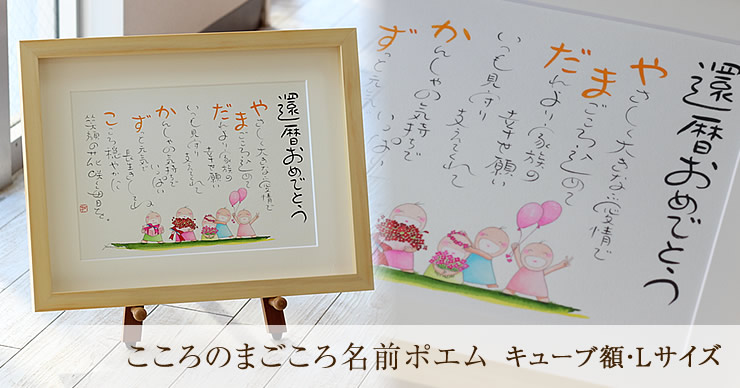 還暦おめでとう
やさしく大きな愛情で
まごころ込めて
だれより家族の
幸せ願い
いつも見守り
支えてくれて
かんしゃの気持ちで
いっぱい
ずっと元気で
長生きして
こころ穏やかに
笑顔のやん花咲く毎日を。
還暦おめでとう
やさしく大きな愛情で
まごころ込めて
だれより家族の
幸せ願い
いつも見守り
支えてくれて
かんしゃの気持ちで
いっぱい
ずっと元気
こころのまごころ名前ポエム キューブ額・Lサイズ